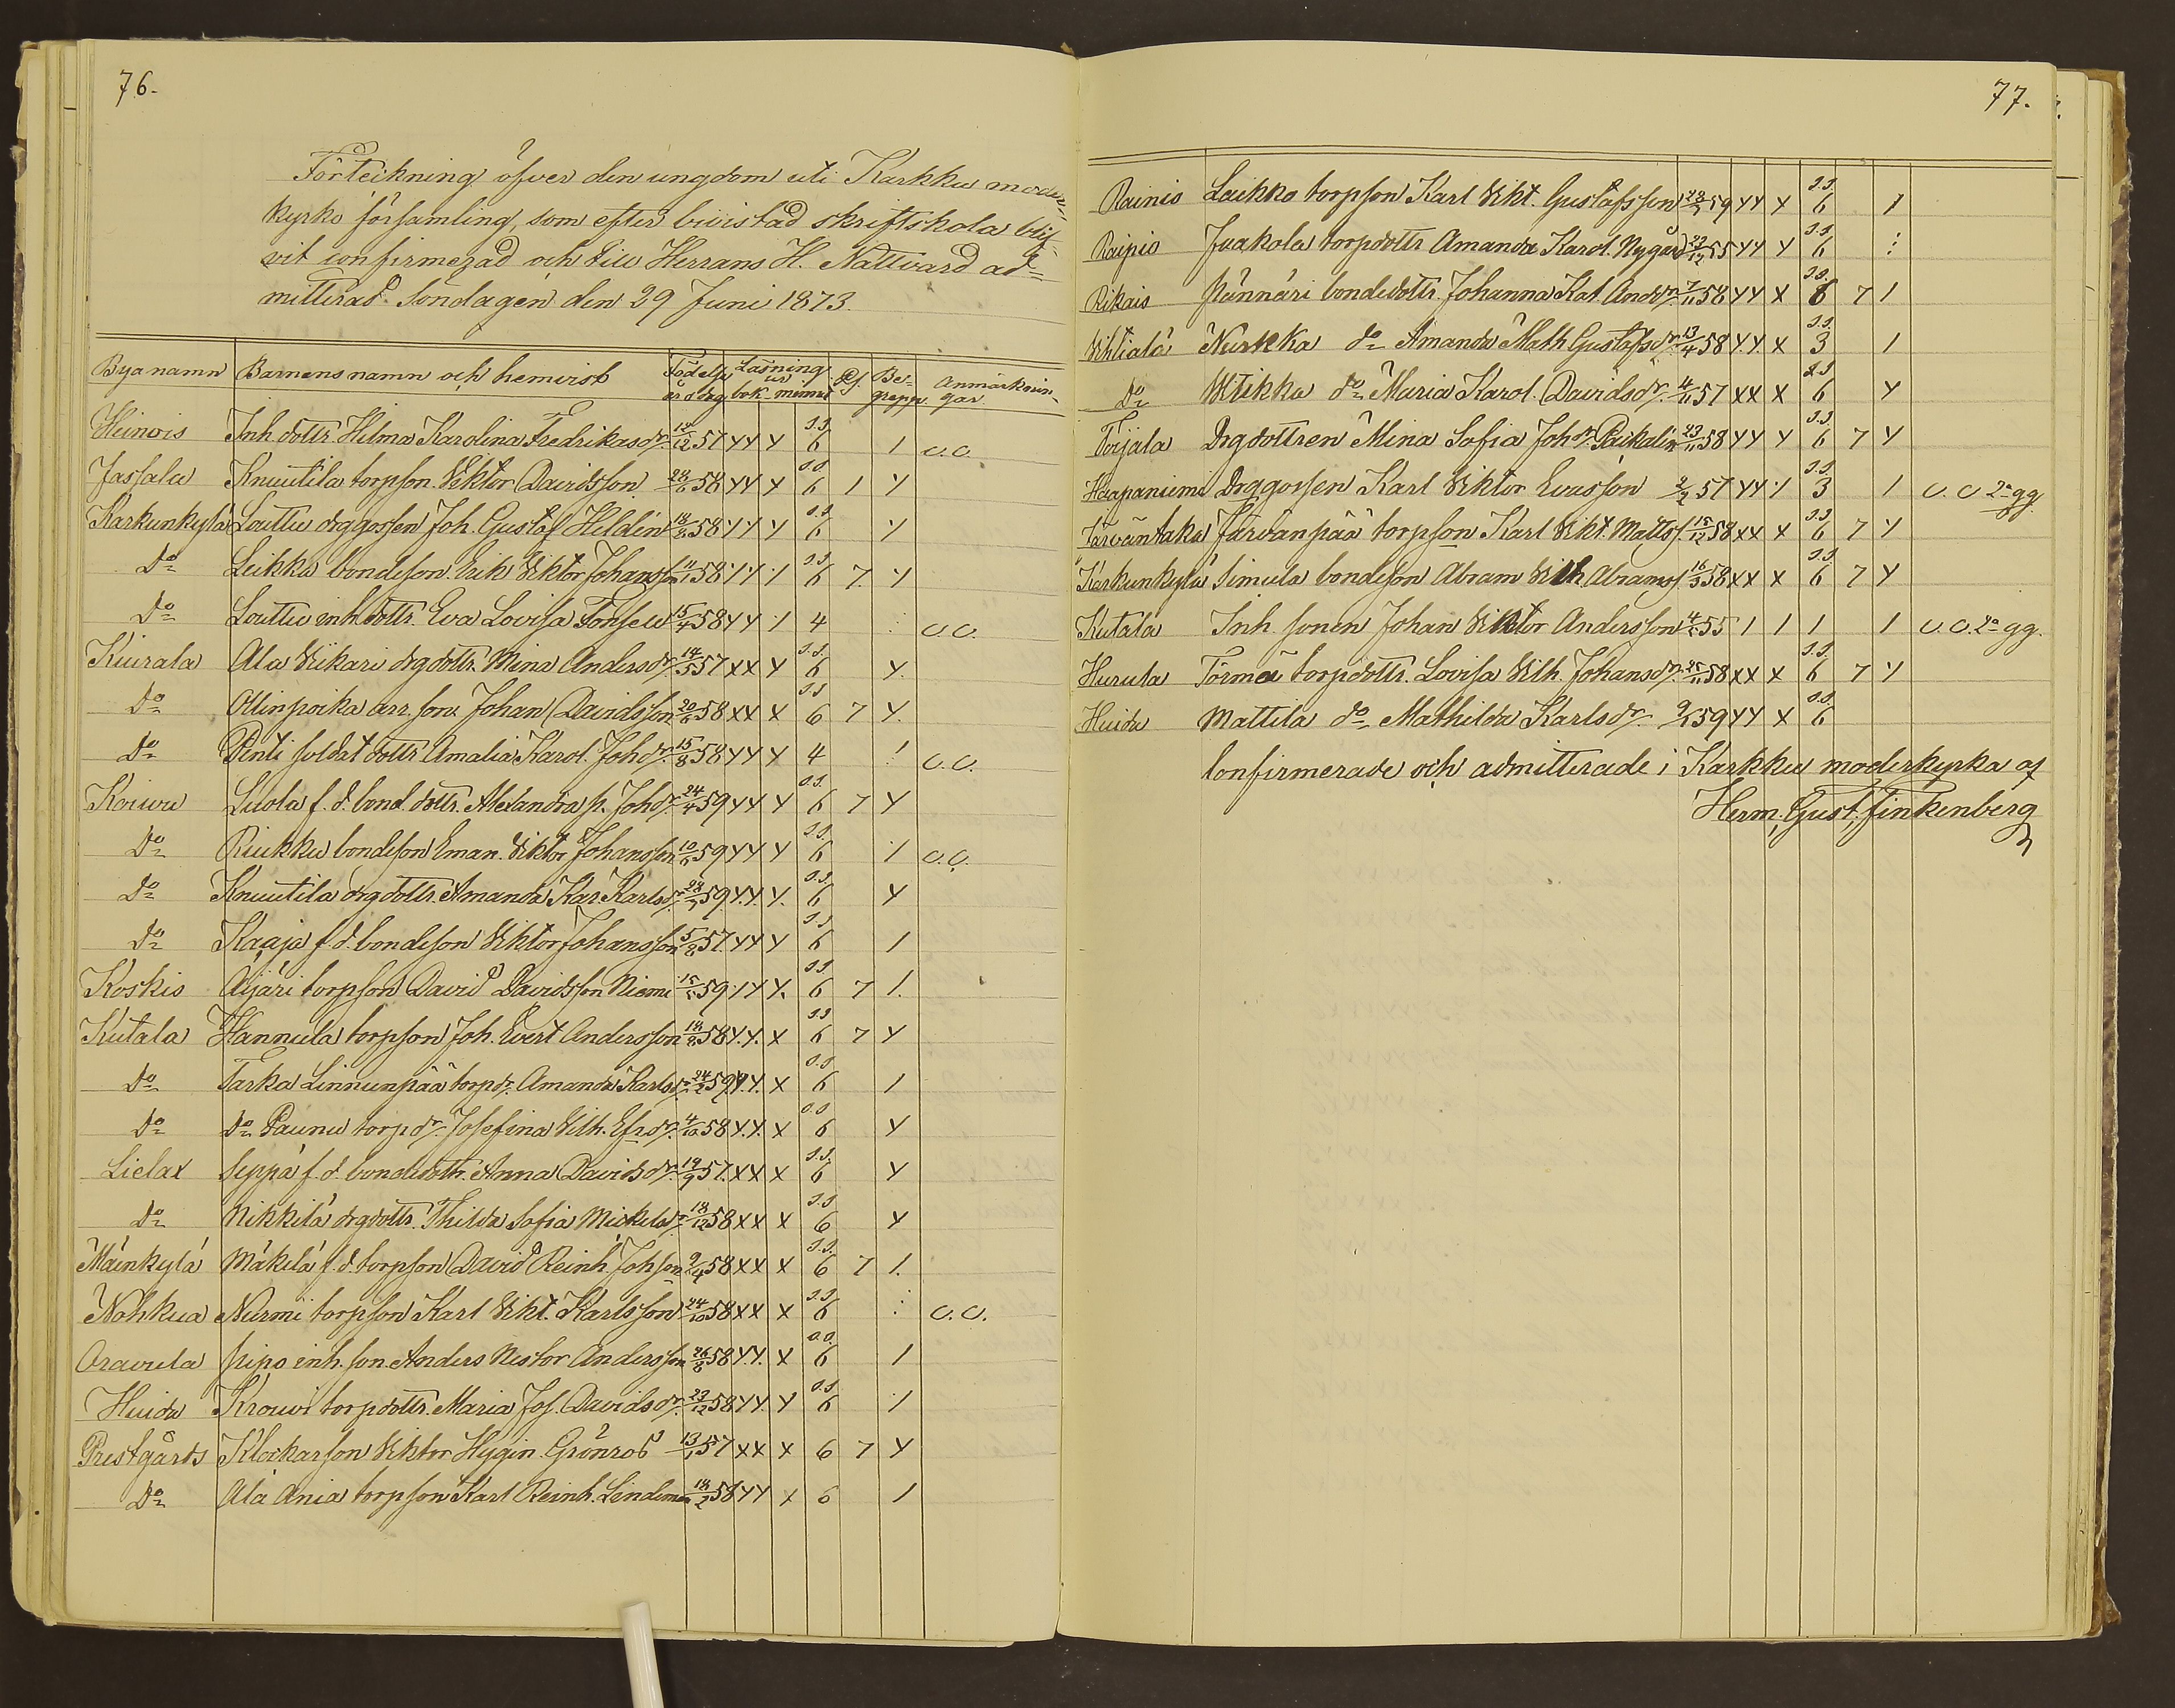 76.
Förteckning öfver den ungdom uti Karkku moder-
kyrko församling, som efter bivistad skriftskola blif-
vit confirmerad och till Herrans H. Nattvard ad-
mitterad Söndagen den 29 Juni 1873.
Byanamn Barnens namn och hemvist Födelse år o dag Läsning ur bok minnet Ps. Be-grepp Anmärknin-gar
Heinois Inh. dottr. Hilma Karolina Fredrikasdr. 57 Y Y Y 6 1 U.U.
Jassala Knuutila torpson Viktor Davidsson 58 Y Y Y 6 1 Y
Karkunkylä Louttu drg gossen Joh. Gustaf Heldén 58 Y Y Y 6 Y
Do Leikka bondeson Erik Viktor Johansson 58 Y Y 1 6 7 Y
Do Louttu inh. dottr. Eva Lovisa Fonsell 15/4 58 Y Y 1 4 U.U.
Kiurala Ala Vikari drg dottr. Mina Andersdr. 14/5 57 X X Y 6 Y
Do Ollinpoika arr. son Johan Davidsson 20/6 58 X X X 6 7 Y
Do Penti soldat dottr. Amalia Karol. Johdr. 15/8 58 Y Y Y 4 U.U.
Koivu Luola f.d. bond. dottr. Alexandra Johdr. 24/4 59 Y Y Y 6 7 Y
Do Riukku bondeson Eman. Viktor Johansson 59 Y Y Y 6 1 U.U.
Do Knuutila drg dottr. Amanda Kar. Karlsdr. 59 Y Y Y 6 Y
Do Kaaja f.d. bondeson Viktor Johansson 5/8 57 Y Y Y 6 1
Koskis Äijäri torpson David Davidsson Niemi 59 1 Y Y 6 7 1
Kutala Hannula torpson Joh. Evert Andersson 58 Y Y X 6 7 Y
Do Tarka Linnunpää torpdr. Amanda Karlsdr. 59 Y Y X 6 1
Do Do Paunu torpdr. Josefina Vilh. Efsdr. 4/10 58 Y Y X 6 Y
Lielax Seppä f.d. bondedottr. Anna Davidsdr. 19/9 57 X X X 6 Y
Do Nikkilä drgdottr. Thilda Sofia Mickelsdr. 58 X X X 6 Y
Mäinkylä Mäkelä f.d. torpson David Reinh. Johson 9/4 58 X X X 6 7 1
Nohkua Nurmi torpson Karl Vikt. Karlsson 24/10 58 X X X 6 U.U.
Oravula Pipo inh. son Anders Nestor Andersson 26/8 58 Y Y X 6 1
Huida Krouvi torpdottr. Maria Jos. Davidsdr. 23/12 58 Y Y Y 6 1
Prestgårds Klockarson Viktor Hygin. Grönros 13/1 57 X X X 6 7 Y
Do Ala Ania torpson Karl Reinh. Lindeman 58 Y Y X 6 1
77.
Rainio Laikko torpson Karl Vikt. Gustafsson 59 Y Y Y 6 1
Raipio Juakola torpdottr. Amanda Karol. Nygård 23/12 55 Y Y Y 6
Rikais Pännäri bondedottr. Johanna Kat. Andrdr. 7/11 58 Y Y X 6 7 1
Vihtiala Nurkka do Amanda Math. Gustafsdr. 13/4 58 Y Y X 3 1
Do Utikka do Maria Karol. Davidsdr. 4/11 57 X X X 6 Y
Torjala Drgdottren Mina Sofia Johdr. Paikalin 23/11 58 Y Y Y 6 7 Y
Haapaniemi Drggossen Karl Viktor Evasson 2/2 57 Y Y 1 3 1 U.U. 2a gg.
Järväntaka Järvänpää torpson Karl Vikt. Matts. 15/12 58 X X X 6 7 Y
Karkunkylä Simula bondeson Abram Vilh. Abramss. 16/3 58 X X X 6 7 Y
Kutala Inh. sonen Johan Viktor Andersson 55 1 1 1 1 U.U. 2a gg.
Hurula Törmä torpdottr. Lovisa Vilh. Johansdr. 25/11 58 X X X 6 7 Y
Huida Mattila do Mathilda Karlsdr. 59 Y Y X 6
Confirmerade och admitterade i Karkku moderkyrka af
Herm. Gust. Finkenberg